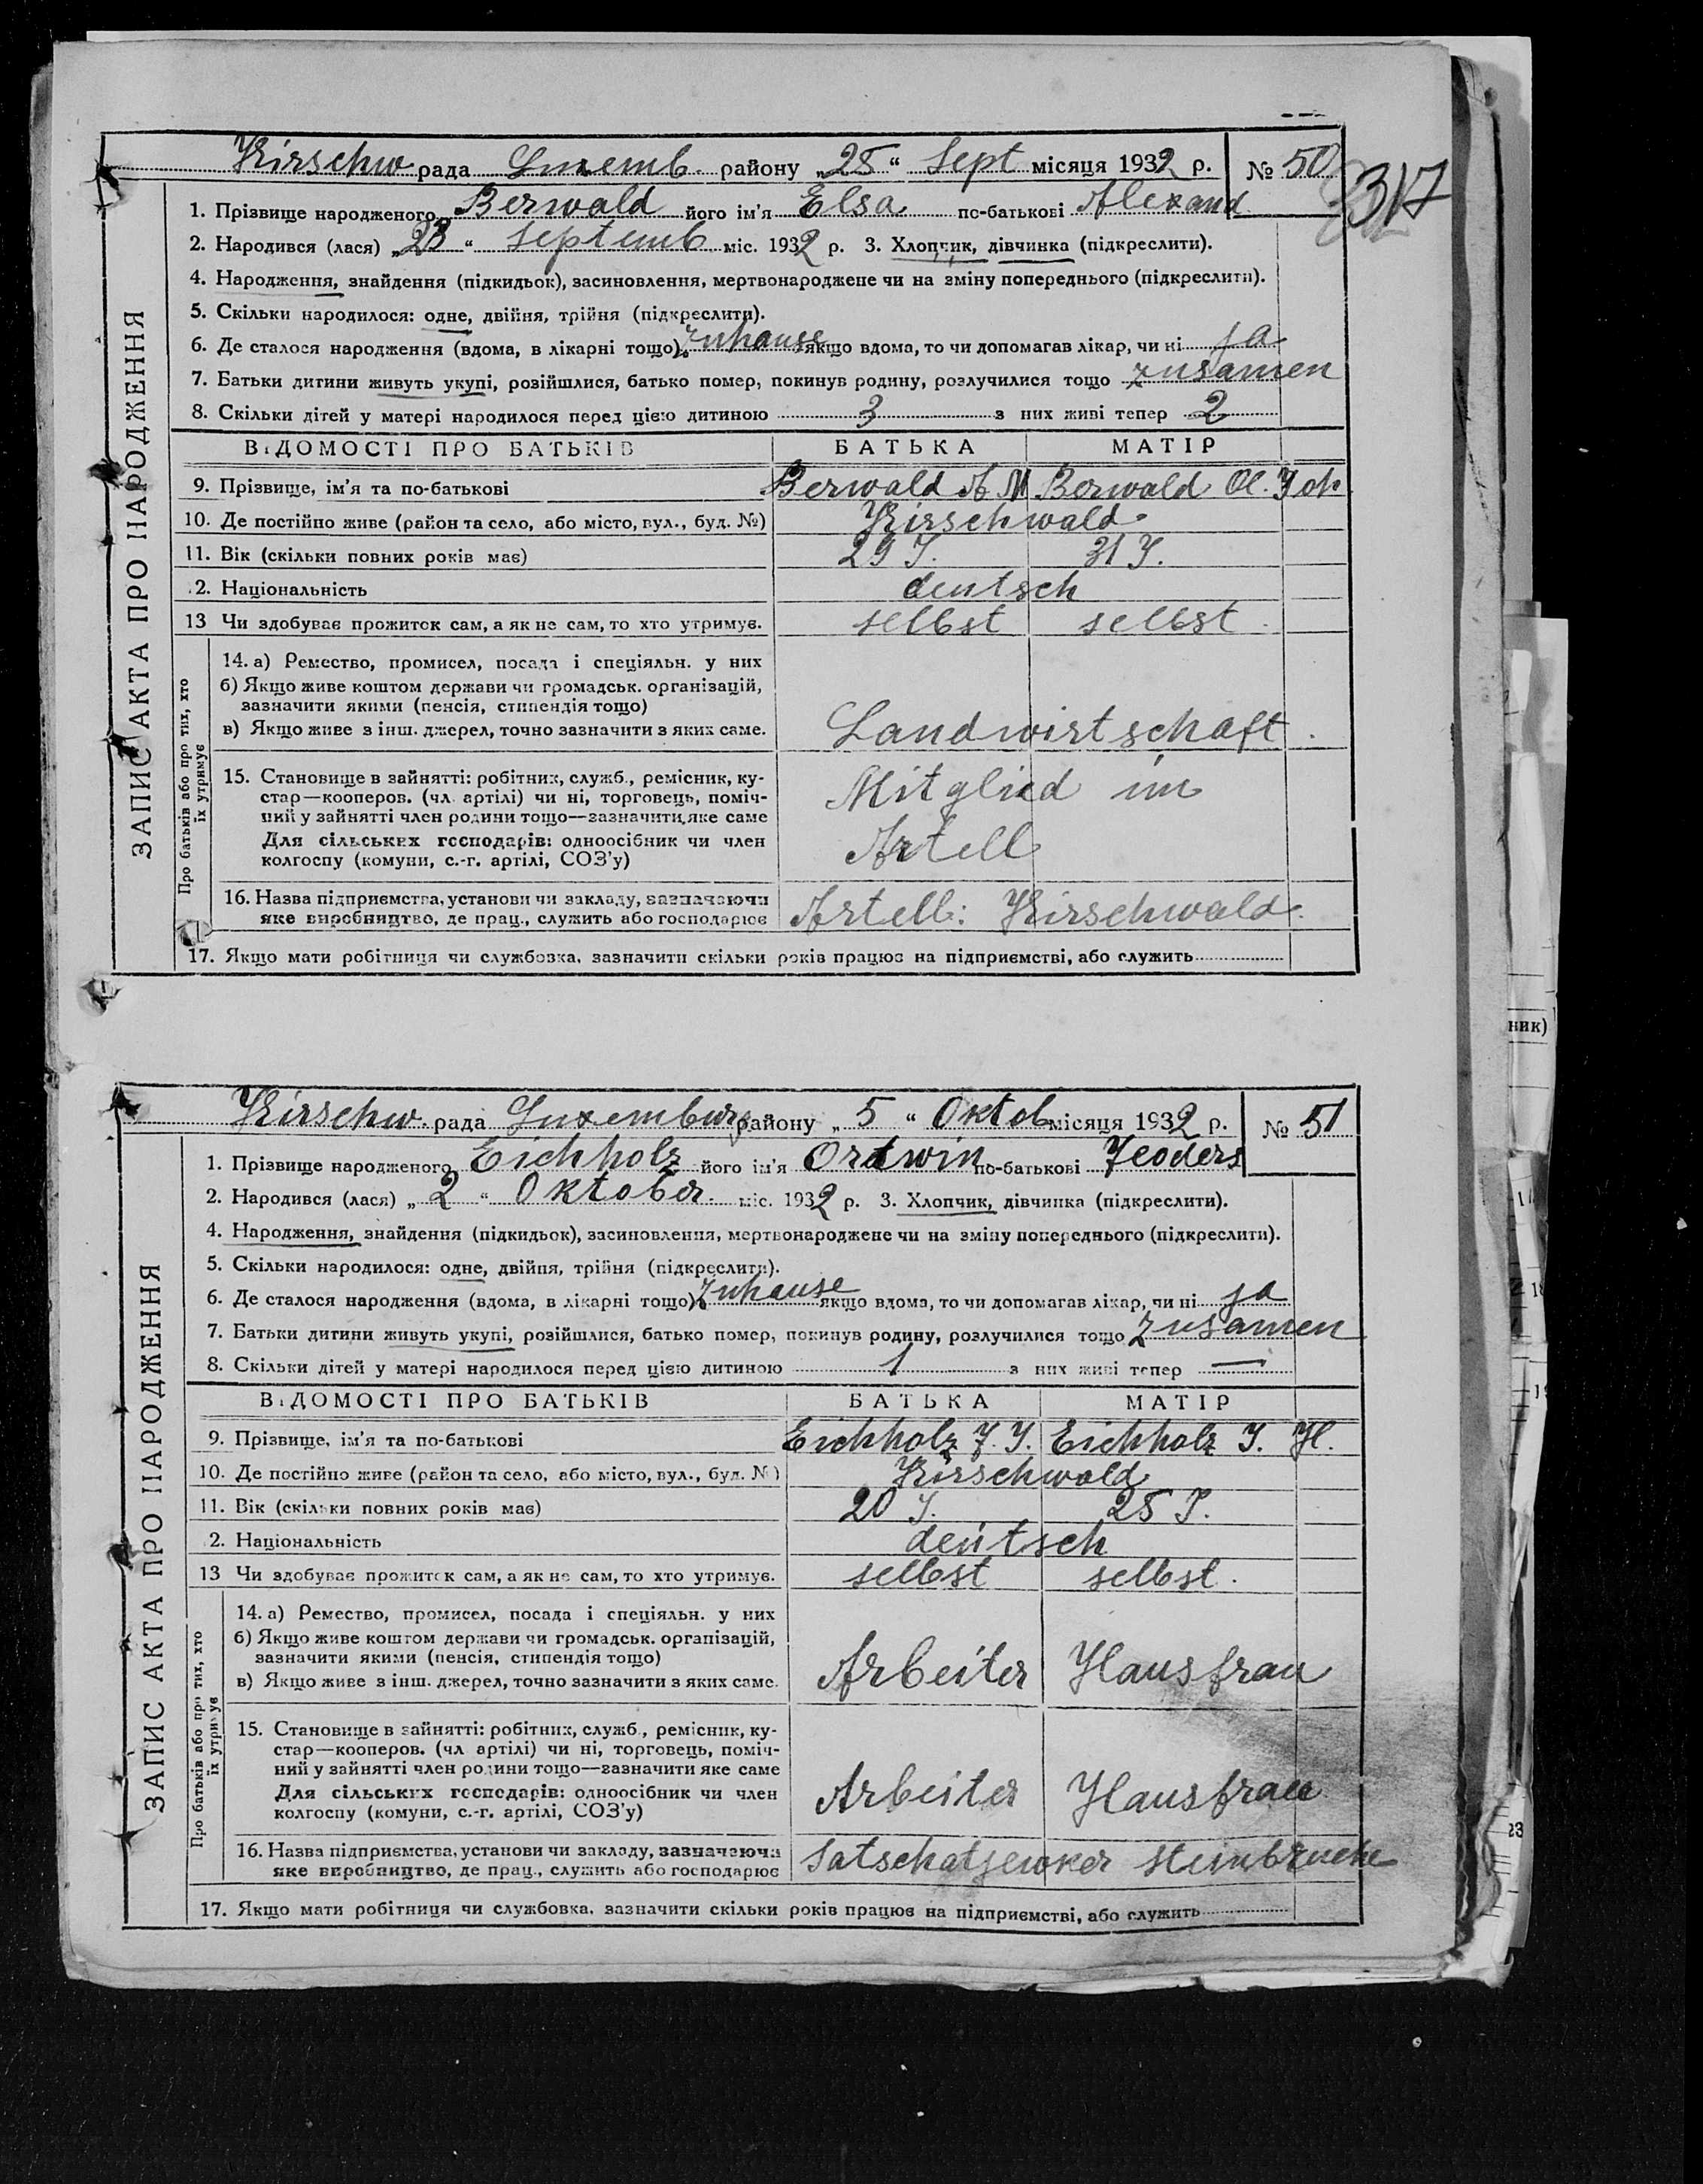 Kirschw рада Luxemb. району „25“ Sept місяця 1932 р. № 50
317
1. Прізвище народженого Berwald його ім'я Elsa по-батькові Alexand
2. Народився (лася) „23“ Septemb міс. 1932 р. 3. Хлопчик, дівчинка (підкреслити).
4. Народження, знайдення (підкидьок), засиновлення, мертвонароджене чи на зміну попереднього (підкреслити).
5. Скільки народилося: одне, двійня, трійня (підкреслити).
6. Де сталося народження (вдома, в лікарні тощо) Zuhause якщо вдома, то чи допомагав лікар, чи ні ja
7. Батьки дитини живуть укупі, розійшлися, батько помер, покинув родину, розлучилися тощо zusamen
8. Скільки дітей у матері народилося перед цією дитиною 3 з них живі тепер 2
ВІДОМОСТІ ПРО БАТЬКІВ БАТЬКА МАТІР
9. Прізвище, ім'я та по-батькові Berwald A M Berwald Ol. Joh
10. Де постійно живе (район та село, або місто, вул., буд. №) Kirschwald
11. Вік (скільки повних років має) 29 J. 31 J.
2. Національність deutsch
13 Чи здобуває прожиток сам, а як не сам, то хто утримує. selbst selbst
14. а) Ремество, промисел, посада і спеціяльн. у них
б) Якщо живе коштом держави чи громадськ. організацій,
зазначити якими (пенсія, стипендія тощо)
в) Якщо живе з інш. джерел, точно зазначити з яких саме. Landwirtschaft.
15. Становище в зайнятті: робітник, служб., ремісник, ку-
стар—кооперов. (чл. артілі) чи ні, торговець, поміч- Mitglied im
ний у зайнятті член родини тощо—зазначити яке саме
Для сільських господарів: одноосібник чи член Artell
колгоспу (комуни, с.-г. артілі, СОЗ'у)
16. Назва підприємства, установи чи закладу, зазначаючи
яке виробництво, де прац., служить або господарює Artell: Kirschwald.
17. Якщо мати робітниця чи службовка, зазначити скільки років працює на підприємстві, або служить
ЗАПИС АКТА ПРО НАРОДЖЕННЯ
Про батьків або про тих, хто
їх утримує
Kirschw. рада Luxemburg району „5“ Oktob місяця 1932 р. № 51
1. Прізвище народженого Eichholz його ім'я Ortwin по-батькові Teoders
2. Народився (лася) „2“ Oktober. міс. 1932 р. 3. Хлопчик, дівчинка (підкреслити).
4. Народження, знайдення (підкидьок), засиновлення, мертвонароджене чи на зміну попереднього (підкреслити).
5. Скільки народилося: одне, двійня, трійня (підкреслити).
6. Де сталося народження (вдома, в лікарні тощо) Zuhause якщо вдома, то чи допомагав лікар, чи ні ja
7. Батьки дитини живуть укупі, розійшлися, батько помер, покинув родину, розлучилися тощо zusamen
8. Скільки дітей у матері народилося перед цією дитиною 1 з них живі тепер —
ВІДОМОСТІ ПРО БАТЬКІВ БАТЬКА МАТІР
9. Прізвище, ім'я та по-батькові Eichholz T. J. Eichholz J. H.
10. Де постійно живе (район та село, або місто, вул., буд. №) Kirschwald
11. Вік (скільки повних років має) 20 J. 25 J.
2. Національність deutsch
13 Чи здобуває прожиток сам, а як не сам, то хто утримує. selbst selbst.
14. а) Ремество, промисел, посада і спеціяльн. у них
б) Якщо живе коштом держави чи громадськ. організацій,
зазначити якими (пенсія, стипендія тощо) Arbeiter Hausfrau
в) Якщо живе з інш. джерел, точно зазначити з яких саме.
15. Становище в зайнятті: робітник, служб., ремісник, ку-
стар—кооперов. (чл артілі) чи ні, торговець, поміч-
ний у зайнятті член родини тощо—зазначити яке саме
Для сільських господарів: одноосібник чи член Arbeiter Hausfrau
колгоспу (комуни, с.-г. артілі, СОЗ'у)
16. Назва підприємства, установи чи закладу, зазначаючи
яке виробництво, де прац., служить або господарює Steinbruche
17. Якщо мати робітниця чи службовка, зазначити скільки років працює на підприємстві, або служить
ЗАПИС АКТА ПРО НАРОДЖЕННЯ
Про батьків або про тих, хто
їх утримує
ник)
23